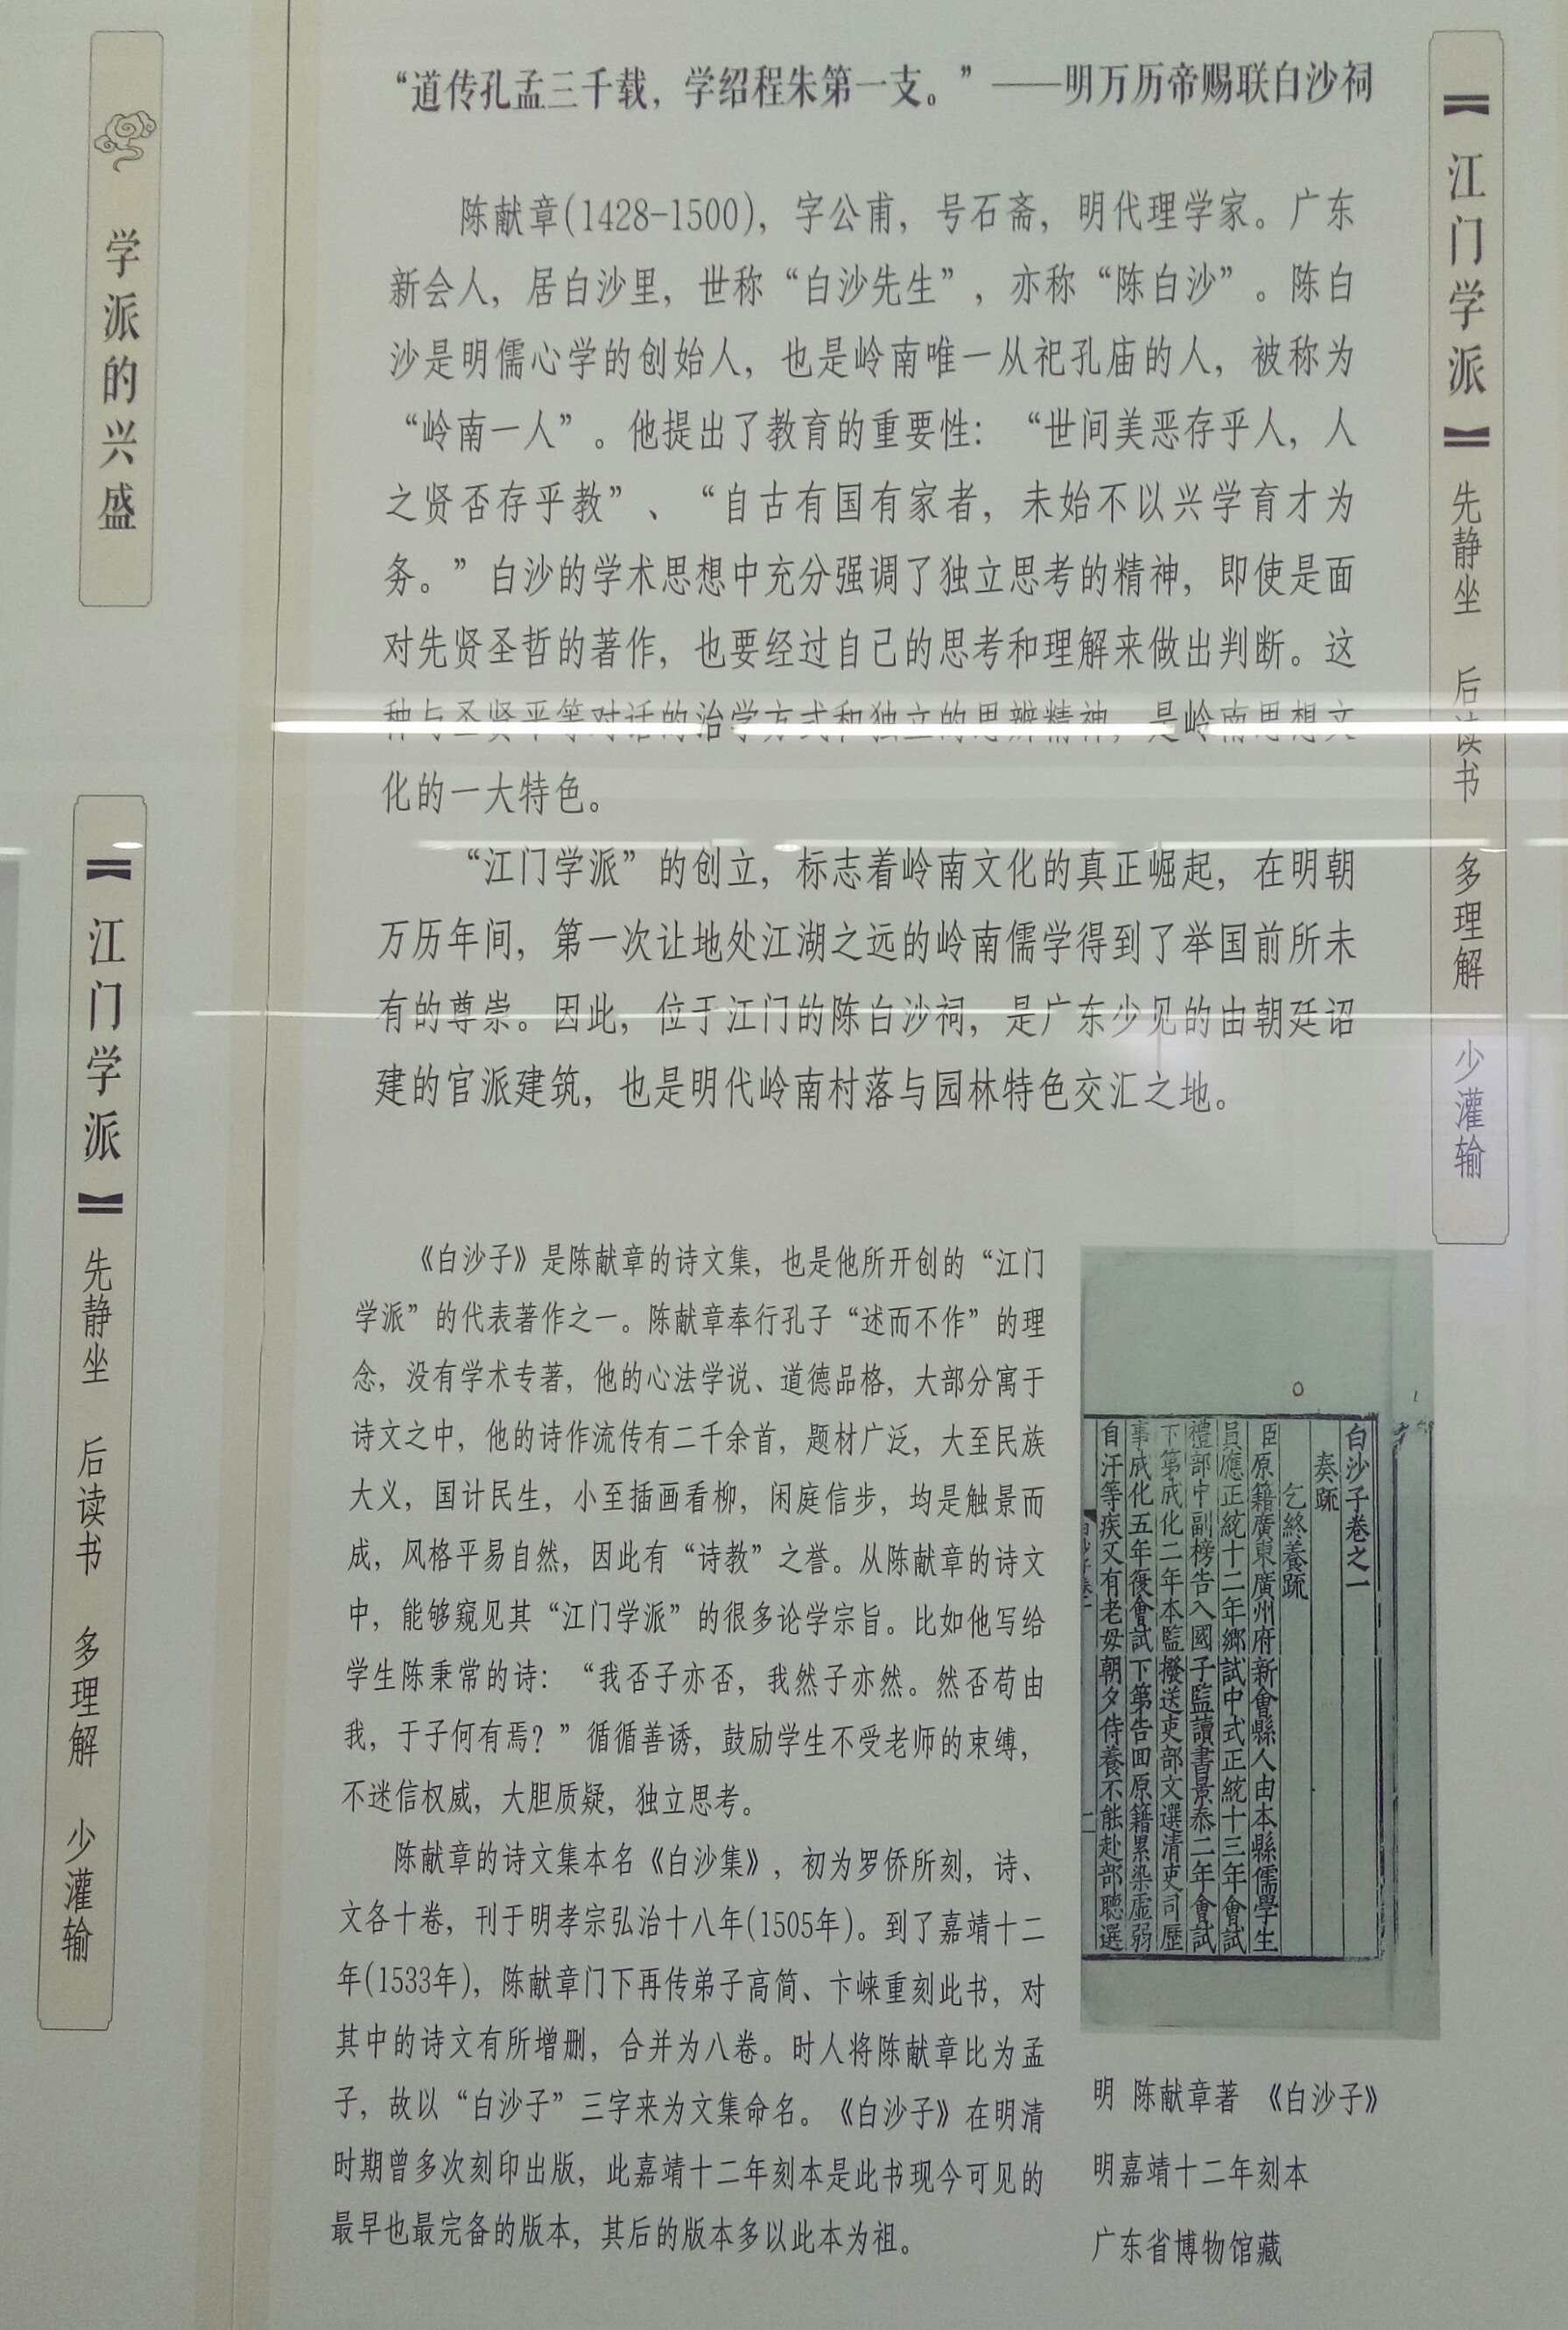 学派的兴盛
【江门学派】先静坐 后读书 多理解 少灌输
“道传孔孟三千载，学绍程朱第一支。”——明万历帝赐联白沙祠
陈献章(1428-1500)，字公甫，号石斋，明代理学家。广东
新会人，居白沙里，世称“白沙先生”，亦称“陈白沙”。陈白
沙是明儒心学的创始人，也是岭南唯一从祀孔庙的人，被称为
“岭南一人”。他提出了教育的重要性：“世间美恶存乎人，人
之贤否存乎教”、“自古有国有家者，未始不以兴学育才为
务。”白沙的学术思想中充分强调了独立思考的精神，即使是面
对先贤圣哲的著作，也要经过自己的思考和理解来做出判断。这
种与圣贤平等对话的治学方式和独立的思辨精神，是岭南思想文
化的一大特色。
“江门学派”的创立，标志着岭南文化的真正崛起，在明朝
万历年间，第一次让地处江湖之远的岭南儒学得到了举国前所未
有的尊崇。因此，位于江门的陈白沙祠，是广东少见的由朝廷诏
建的官派建筑，也是明代岭南村落与园林特色交汇之地。
《白沙子》是陈献章的诗文集，也是他所开创的“江门
学派”的代表著作之一。陈献章奉行孔子“述而不作”的理
念，没有学术专著，他的心法学说、道德品格，大部分寓于
诗文之中，他的诗作流传有二千余首，题材广泛，大至民族
大义，国计民生，小至插画看柳，闲庭信步，均是触景而
成，风格平易自然，因此有“诗教”之誉。从陈献章的诗文
中，能够窥见其“江门学派”的很多论学宗旨。比如他写给
学生陈秉常的诗：“我否子亦否，我然子亦然。然否苟由
我，于子何有焉？”循循善诱，鼓励学生不受老师的束缚，
不迷信权威，大胆质疑，独立思考。
陈献章的诗文集本名《白沙集》，初为罗侨所刻，诗、
文各十卷，刊于明孝宗弘治十八年(1505年)。到了嘉靖十二
年(1533年)，陈献章门下再传弟子高简、卞崃重刻此书，对
其中的诗文有所增删，合并为八卷。时人将陈献章比为孟
子，故以“白沙子”三字来为文集命名。《白沙子》在明清
时期曾多次刻印出版，此嘉靖十二年刻本是此书现今可见的
最早也最完备的版本，其后的版本多以此本为祖。
白沙子卷之一
奏疏
乞終養疏
臣原籍廣東廣州府新會縣人由本縣儒學生
員應正統十二年鄉試中式正統十三年會試
禮部中副榜告入國子監讀書景泰二年會試
下第成化二年本監撥送吏部文選清吏司歷
事成化五年復會試下第告回原籍累染虛弱
自汗等疾又有老母朝夕侍養不能赴部聽選
明 陈献章著 《白沙子》
明嘉靖十二年刻本
广东省博物馆藏
【江门学派】先静坐 后读书 多理解 少灌输